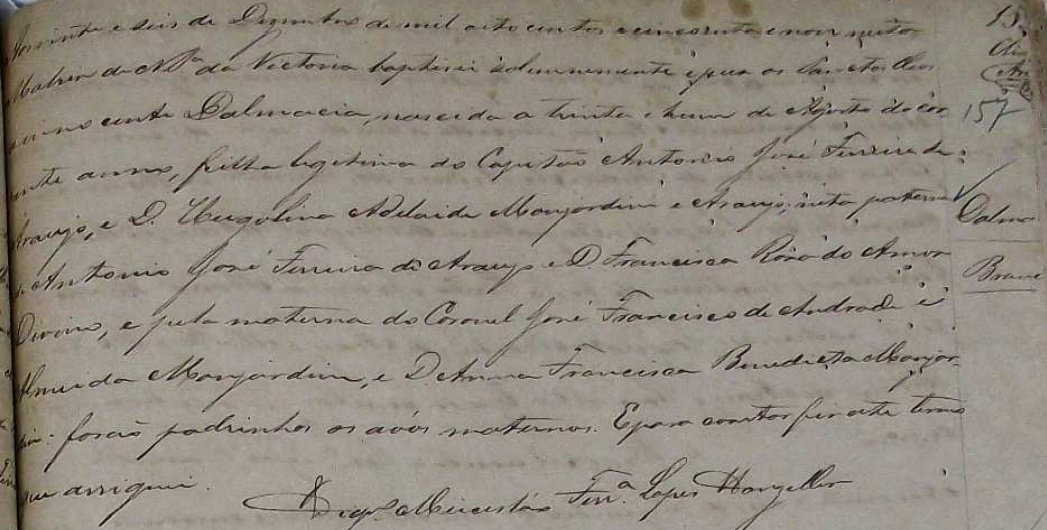 Aos vinte e seis de Dezembro de mil oito centos e cincoenta e nove nesta
Matriz de N. S.ª da Victoria baptisei solemnemente e puz os Sanctos Oleos
innocente Dalmacia, nascida a trinta e hum de Agosto do cor
ente anno, filha legitima do Capitão Antonio José Ferreira de
Araujo, e D. Hugolina Adelaide Monjardim e Araujo; neta paterna
de Antonio José Ferreira de Araujo e D. Francisca Rosa do Amor
Divino, e pela materna do Coronel José Francisco de Andrade e
Almeida Monjardim, e D. Anna Francisca Benedicta Monjar
dim: forão padrinhos os avós maternos. E para constar fiz este termo
que assignei.
Ferr.ª Lopes
15
157
Dalma
Branc